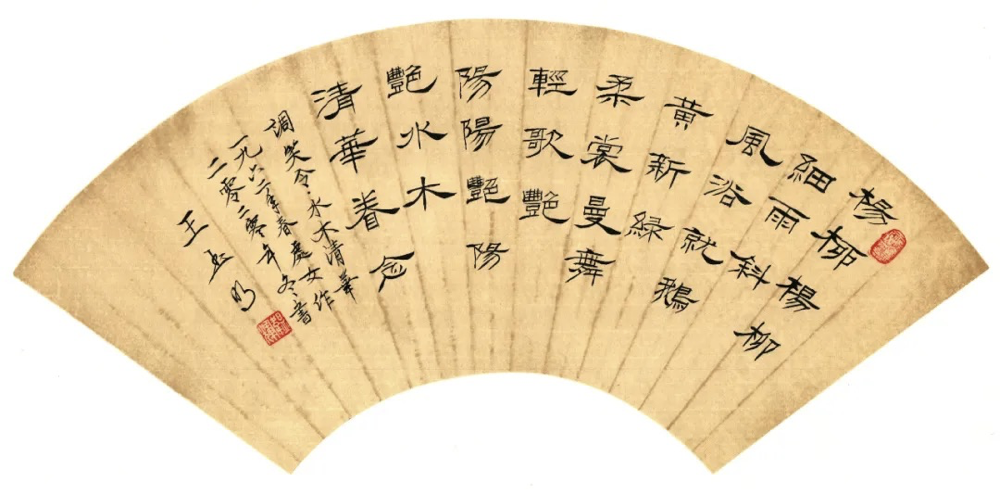 楊柳楊柳
細雨斜
風浴就鵝
黄新緑
柔裳曼舞
輕歌艷
陽陽艷陽
艷水木
清華眷念
調笑令·水木清華
一九六二年春處女作
二零二零年冬書
王 明